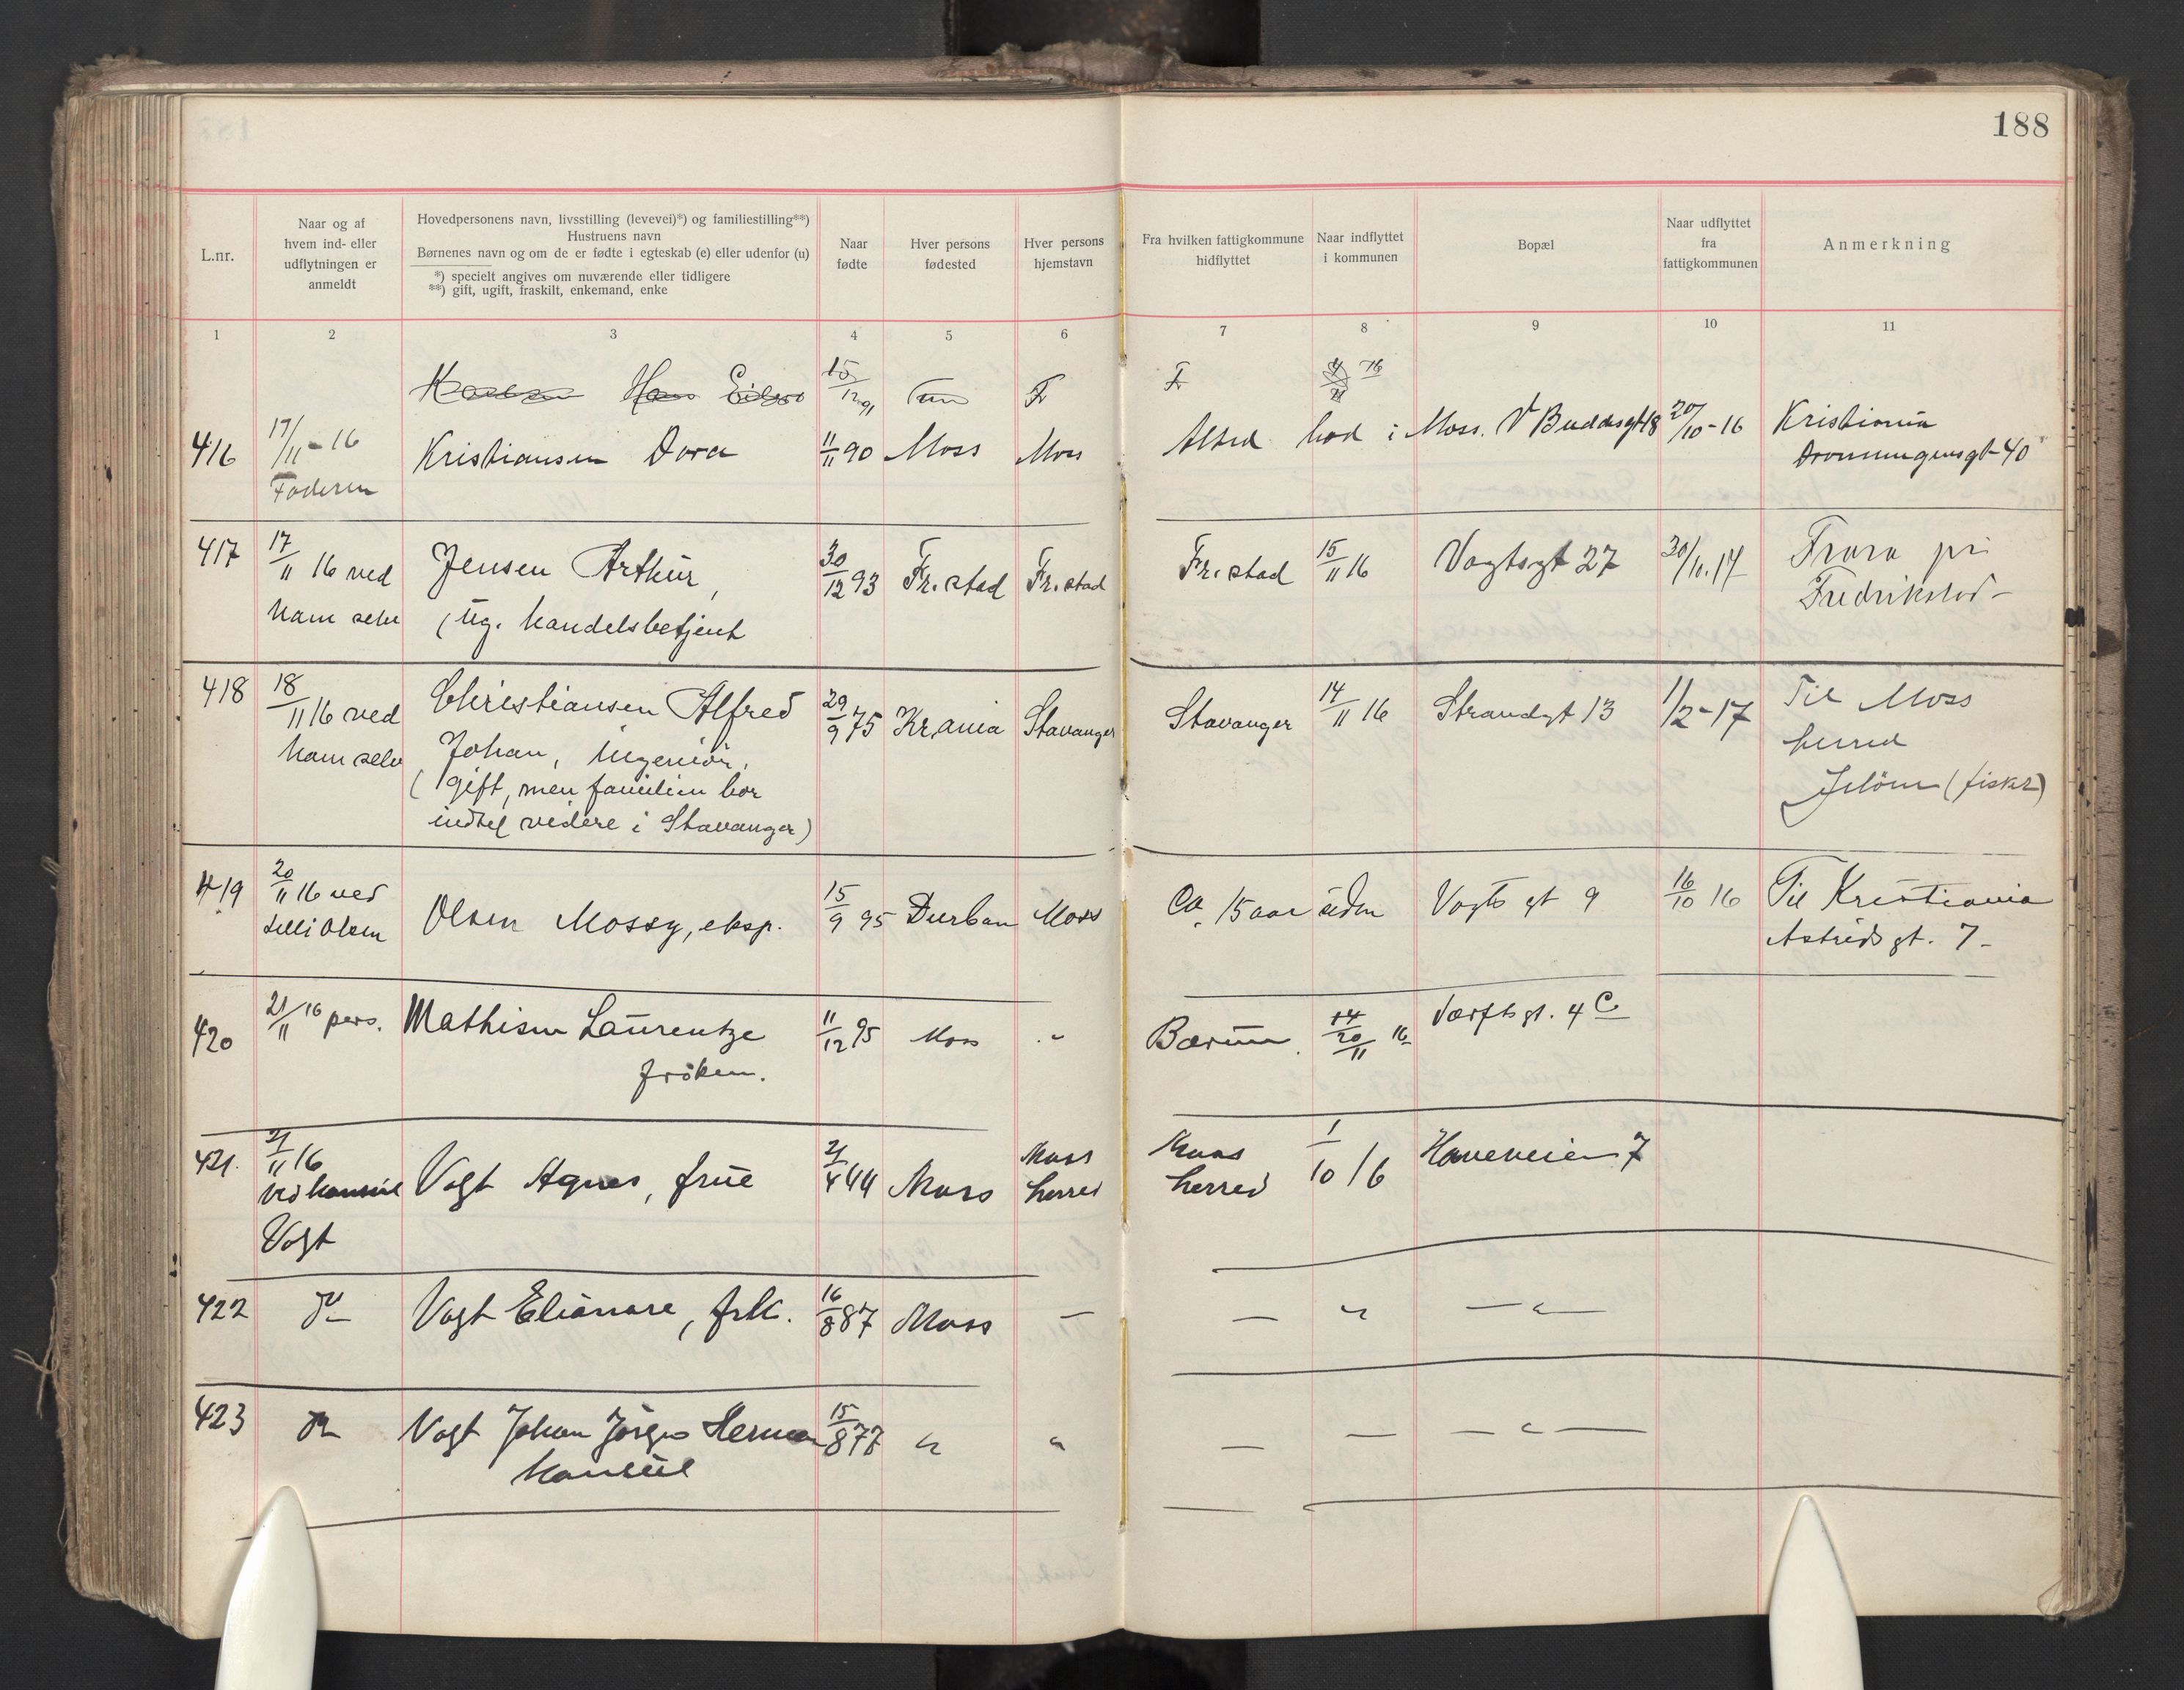 188
L.nr.
Naar og af
hvem ind- eller
udflytningen er
anmeldt
Hovedpersonens navn, livsstilling (levevei)*) og familiestilling**)
Hustruens navn
Børnenes navn og om de er fødte i egteskab (e) eller udenfor (u)
*) specielt angives om nuværende eller tidligere
**) gift, ugift, fraskilt, enkemand, enke
Naar
fødte
Hver persons
fødested
Hver persons
hjemstavn
Fra hvilken fattigkommune
hidflyttet
Naar indflyttet
i kommunen
Bopæl
Naar udflyttet
fra
fattigkommunen
Anmerkning
1 2 3 4 5 6 7 8 9 10 11
Hans 15/12 91 Fr Fr
416 17/11-16 Kristiansen Dora 11/11 90 Moss Moss Altid bod i Moss. V Buddesgt 18 20/10-16 Kristiania
Faderen Dronningensgt 40
417 17/11 16 ved Jensen Arthur, 30/12 93 Fr.stad Fr.stad Fr.stad 15/11 16 Vogtsgt 27 30/11.17
ham selv (ug. handelsbetjent Fredrikstad-
418 18/11 16 ved Christiansen Alfred 29/9 75 Kr.ania Stavanger Stavanger 14/11 16 Strandgt 13 1/2-17 Til Moss
ham selv Johan, ingeniör, herred
(gift, men familien bor Jelöen (fiske)
indtil videre i Stavanger)
419 20/11 16 ved Olsen Mossy, eksp. 15/9 95 Durban Moss Ca. 15 aar siden Vogts gt 9 16/10 16 Til Kristiania
Olsen Astrids gt. 7-
420 21/11 16 pers. Mathisen Laurentze 11/12 95 Moss " Bærum 14 20/11 16 Værftsgt. 4 C
fröken.
421. 21/11 16 Vogt Agnes, frue 21/4 44 Moss Moss herred Moss herred 1/10 16 Haveveien 7
ved konsul
Vogt
422 Do Vogt Elianore, frk. 16/8 87 Moss — — " — " —
423 Do Vogt Johan Jörgen Herman 15/8 77 " " — — — " —
konsul